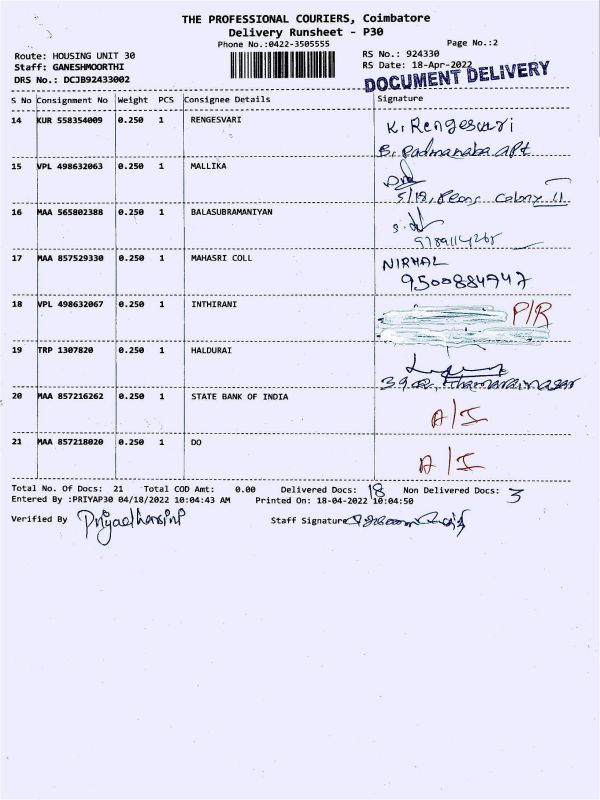 THE PROFESSIONAL COURIERS, Coimbatore
Delivery Runsheet - P30
Phone No.:0422-3505555
Page No.:2
Route: HOUSING UNIT 30
RS No.: 924330
Staff: GANESHMOORTHI
RS Date: 18-Apr-2022
DRS No.: DCJB92433002
DOCUMENT DELIVERY
S No Consignment No Weight PCS Consignee Details Signature
14 KUR 558354009 0.250 1 RENGESVARI K. Rengesvari
B. Padmanaba apt
15 VPL 498632063 0.250 1 MALLIKA
5/19, Peons Colony II
16 MAA 565802388 0.250 1 BALASUBRAMANIYAN
9789114265
17 MAA 857529330 0.250 1 MAHASRI COLL NIRMAL
9500884947
18 VPL 498632067 0.250 1 INTHIRANI P/R
19 TRP 1307820 0.250 1 HALDURAI
20 MAA 857216262 0.250 1 STATE BANK OF INDIA A/I
21 MAA 857218020 0.250 1 DO A/I
Total No. Of Docs: 21 Total COD Amt: 0.00 Delivered Docs: 18 Non Delivered Docs: 3
Entered By :PRIYAP30 04/18/2022 10:04:43 AM Printed On: 18-04-2022 10:04:50
Verified By Priyadharsini Staff Signature